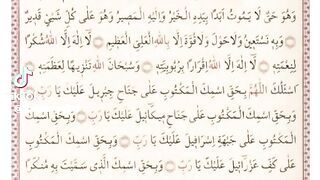 وَهُوَ حَيٌّ لَا يَمُوتُ اَبَدًا بِيَدِهِ الْخَيْرُ وَاِلَيْهِ الْمَصِيرُ وَهُوَ عَلَى كُلِّ شَيْئٍ قَدِيرٌ
وَبِهِ نَسْتَعِينُ وَلَاحَوْلَ وَلَاقُوَّةَ اِلَّا بِاللهِ الْعَلِيِّ الْعَظِيمِ لَا اِلَهَ اِلَّا اللهُ شُكْرًا
لِنِعْمَتِهِ لَا اِلَهَ اِلَّا اللهُ اِقْرَارًا بِرُبُوبِيَّتِهِ وَسُبْحَانَ اللهِ تَنْزِيهًا لِعَظَمَتِهِ
اَسْئَلُكَ اللّٰهُمَّ بِحَقِّ اسْمِكَ الْمَكْتُوبِ عَلَى جَنَاحِ جِبْرِيلَ عَلَيْكَ يَا رَبِّ
وَبِحَقِّ اسْمِكَ الْمَكْتُوبِ عَلَى جَنَاحِ مِيكَائِيلَ عَلَيْكَ يَا رَبِّ وَبِحَقِّ اسْمِكَ
الْمَكْتُوبِ عَلَى جَبْهَةِ اِسْرَافِيلَ عَلَيْكَ يَا رَبِّ وَبِحَقِّ اسْمِكَ الْمَكْتُوبِ
عَلَى كَفِّ عَزْرَائِيلَ عَلَيْكَ يَا رَبِّ وَبِحَقِّ اسْمِكَ الَّذِى سَمَّيْتَ بِهِ مُنْكَرًا